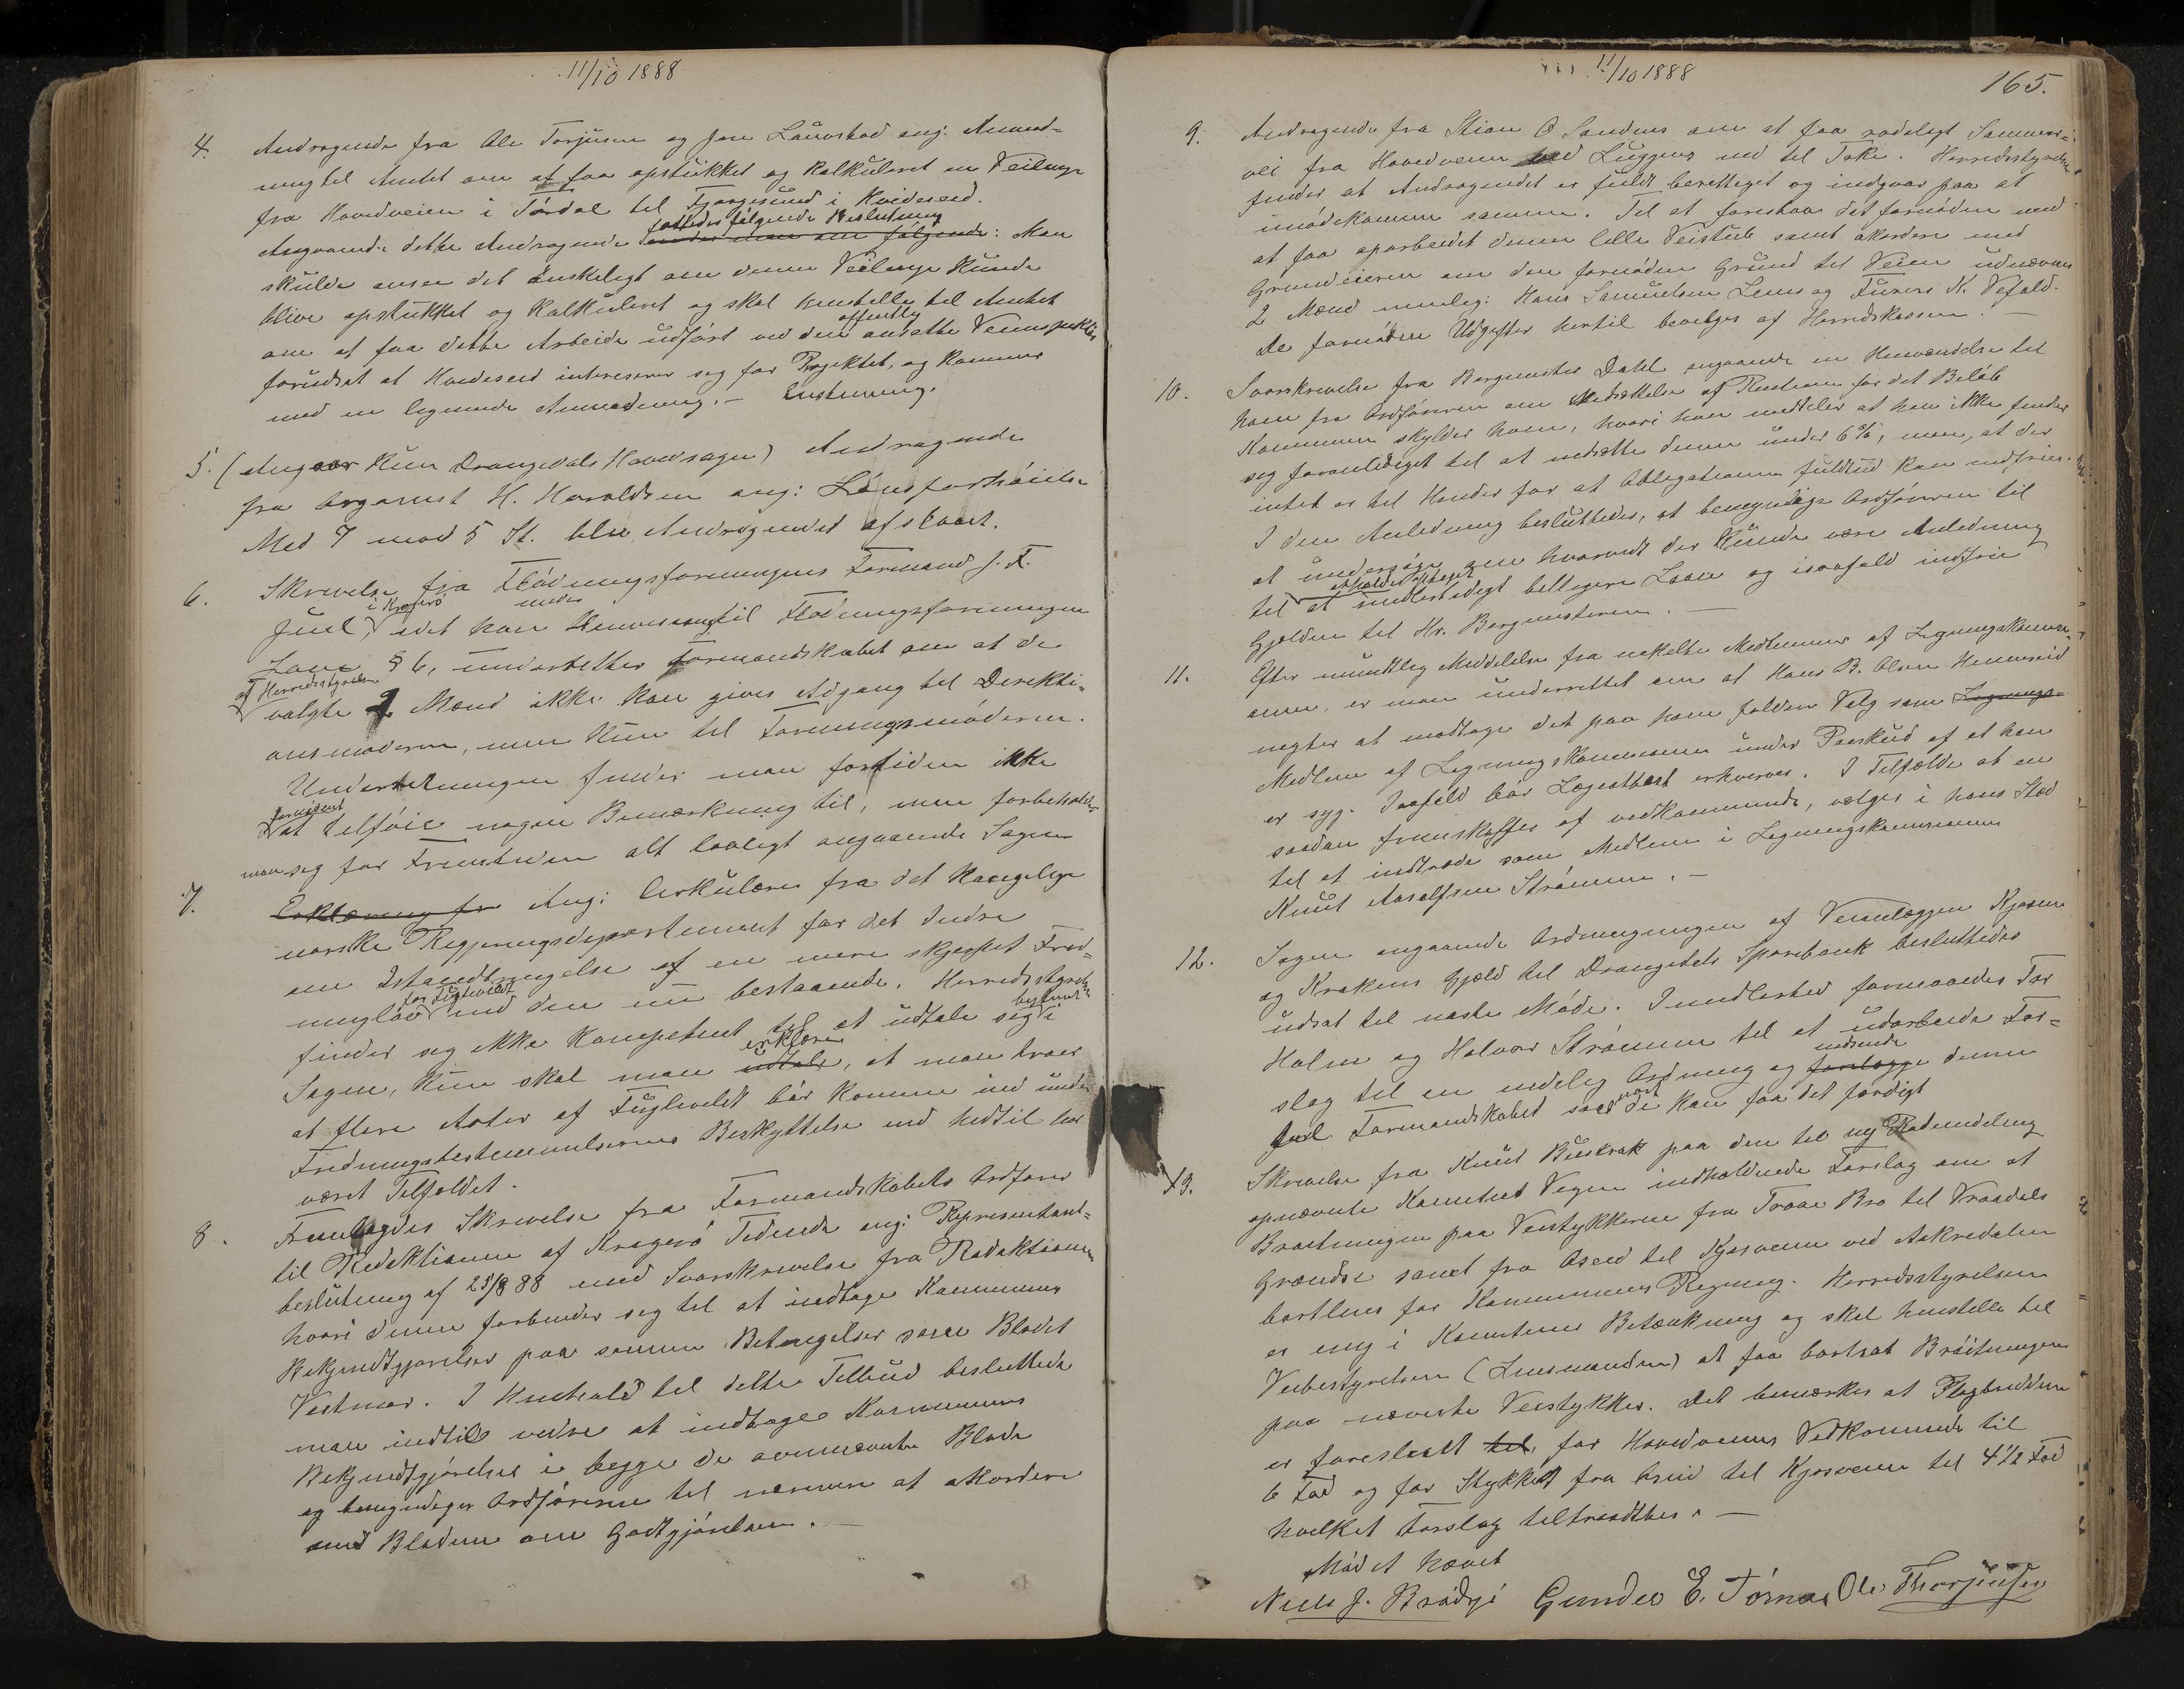 11/10 1888
4. Andragende fra Ole Torjusen og Jon Laurstad ang: Anmod-
ning til Amtet om at faa opstukket og kalkuleret en Veilinje
fra Hovedveien i Tórdal til Fjaagesund i Kvideseid.
Angaaende dette Andragende fattedes følgende Beslutning : Man
skulde anse det ónskeligt om denne Veilinje kunde
blive opstukket og kalkuleret og skal henstille til Amtet
om at faa dette Arbeide udfórt ved den offentlig ansatte Veiinspektór
forudsat at Hvedeseid interesserer sig for Projektet, og kommer
med en lignende Anmodning. - Enstemmig.
5. (Angaar kun Drangedals Hovedsogn) Andragende
fra Organist H. Haraldsen ang: Lónsforhóielse
Med 7 mod 5 St. blev Andragendet afslaaet.
6. Skrivelse fra Flódningsforeningens Formand J. F.
Juel, i Krageró idet han under Henvisning til Flódningsforeningen
Love § 6, underretter Formandskabet om at de
af Herredsstyrelsen valgte 2 Mænd ikke kan gives Adgang til Direkti-
onsmóderne, men kun til Foreningsmóderne.
Underretningen finder man fortiden ikke
fornódent at tilfóie nogen Bemærkning til, men forbeholder
man sig for Fremtiden alt lovligt angaaende Sagen
7. Erklæring fr Ang: Cirkulære fra det kongelige
norske Regjeringsdepartement for det Indre
om Istandbringelse af en mere skjærpet Fred-
ningslov for Fuglevildt end den nu bestaaende. Herredsstyrelsen
finder sig ikke kompetent til at udtale sig bestemt i
Sagen, kun skal man udtale erklære, at man troer
at flere Arter af Fuglevildt bór komme ind under
Fredningsbestemmelsernes Beskyttelse end hidtil har
været Tilfældet.
8. Fremlagdes Skrivelse fra Formandskabets Ordfører
til Redaktionen af Krageró Tidende ang: Representant-
beslutning af 25/8 88 med Svarskrivelse fra Redaktionen
hvori denne forbinder sig til at indtage Kommunens
Bekjendtgjørelser paa samme Betingelser som Bladet
Vestmar. I Henhold til dette Tilbud besluttede
man indtil videre at indtage Kommunens
Bekjendtgjórelser i begge de ovennævnte Blade
og bemyndiger Ordfóreren til nærmere at akordere
med Bladene om Godtgjórelsen. -
11/10 1888
165.
9. Andragende fra Stian O Sandens om at faa rodelagt Sommer-
vei fra Hovedveien ved Luggens ned til Toke. Herredsstyrelsen
finder at Andragendet er fuldt berettiget og indgaar paa at
imódekomme samme. Til at forestaa det fornódne med
at faa oparbeidet denne lille Veistub samt akordere med
Grundeieren om den fornódne Grund til Veien udnævnes
2 Mænd nemlig: Hans Samuelsen Lens og Sivert K. Vefald.
De fornódne Udgifter hertil bevilges af Herredskassen. -
10. Svarskrivelse fra Bergmester Dahl angaaende en Henvendelse til
ham fra Ordfóreren om Nedsættelse af Renten for det Belób
Kommunen skylder ham, hvori han meddeler at han ikke finder
sig foranlediget til at nedsætte denne under 6%, men, at der
intet er til Hinder for at Obligationen fuldtud kan indfries.
I den Anledning besluttedes, at bemyndige Ordfóreren til
at undersóge, om hvorvidt der kunde være Anledning
til at erholde optaget imidlertidigt billigere Laan og isaafald indfrie
Gjælden til Hr. Bergmesteren. -
11. Efter mundtlig Meddelelse fra enkelte Medlemmer af Ligningskommis-
onen, er man underrettet om at Hans B. Olsen Henneseid
negter at modtage det paa ham faldne Valg som Lignings-
Medlem af Ligningskommisionen under Paaskud af at han
er syg. Isaafald bór Lægeattest erhverves. I Tilfælde at en
saadan fremskaffes af vedkommende, vælges i hans Sted
til at indtræde som Medlem i Ligningskommisionen
Knut Aasolfsen Strómme. -
12. Sagen angaaende Ordningen af Veianlæggene Kjosen
og Krakens Gjæld til Drangedals Sparebank besluttedes
udsat til næste Móde. Imidlertid formaaedes Tor
Holm og Halvor Strómme til at udarbeide For-
slag til en endelig Ordning og forelægge indsende denne
til Formandskabet saasnart de kan faa det færdigt
13. Skrivelse fra Knut Buskrak paa den til ny Rodeindeling
opnævnte Komitees Vegne indholdende Forslag om at
Bróitningen paa Veistykkerne fra Traae Bro til Vraadals
Grændse samt fra Oseid til Kjosveien ved Aakredalen
bortlius for Kommunens Regning. Herredsstyrelsen
er enig i Komiteens Betænkning og skal henstille til
Veibestyrelsen (Lensmanden) at faa bortsat Bróitningen
paa nævnte Veistykker. Det bemærkes at Plogbredden
er foreslaaet til, for Hovedveiens Vedkommende til
6 Fod og for Stykket fra Oseid til Kjosveien til 4 1/2 Fod
hvilket Forslag tiltraadtes. -
Mødet hævet
Niels J. Bródsjó Gunder E. Tórnes Ole Thorjussen